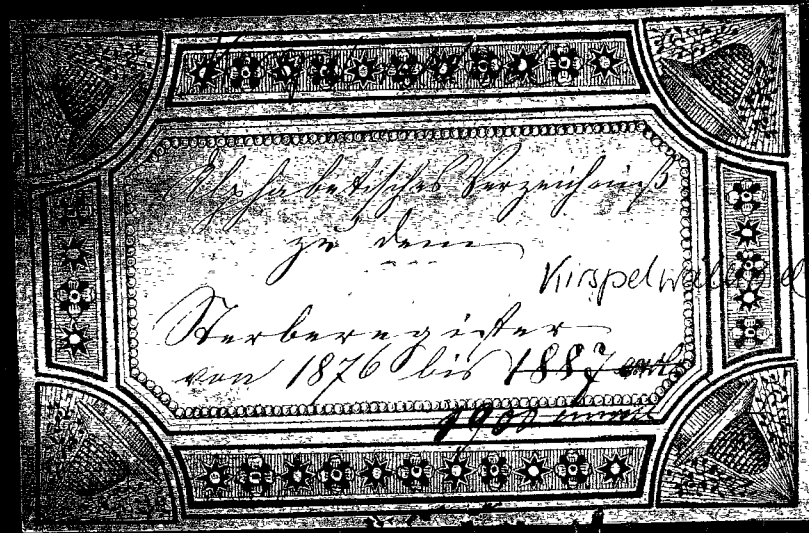 Alphabetisches Verzeichniß
zu dem
Kirspelwaldniel
Sterberegister
von 1876 bis 1887
1900